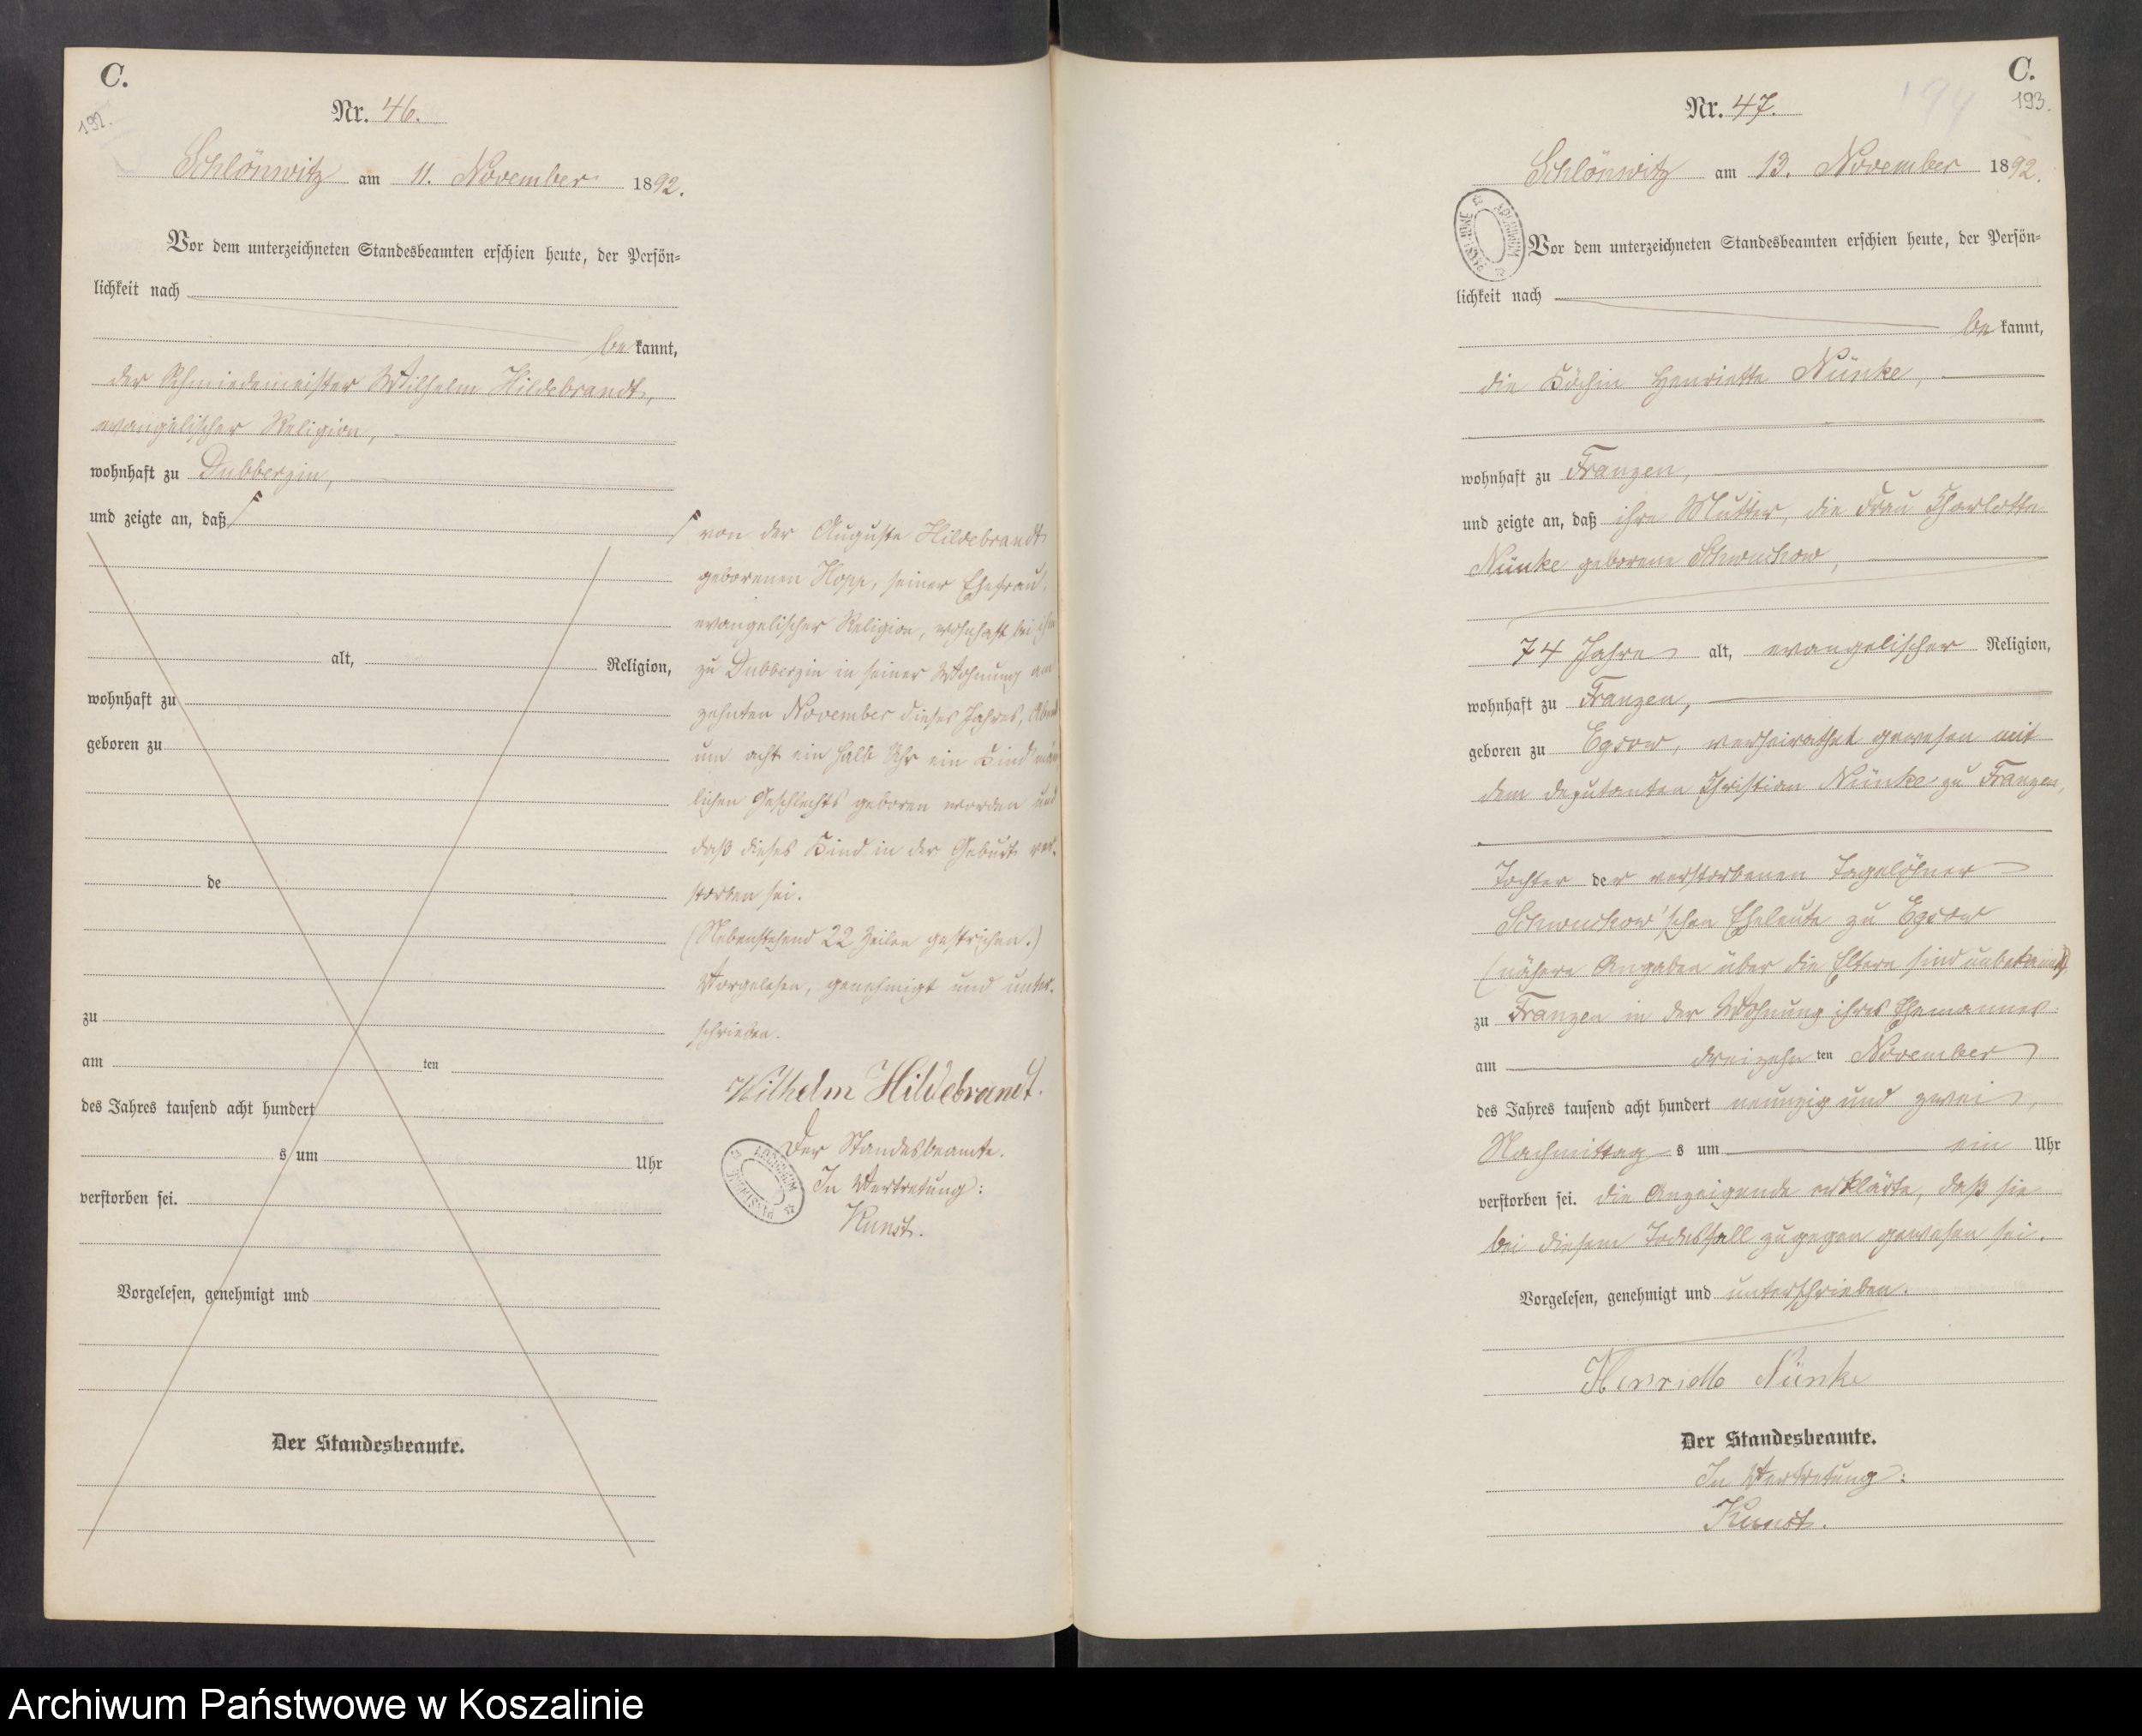 C.
192.
Nr. 46.
Schlönwitz am 11. November 1892.
Vor dem unterzeichneten Standesbeamten erschien heute, der Persön=
lichkeit nach
bekannt,
der Schmiedemeister Wilhelm Hildebrandt,
evangelischer Religion,
wohnhaft zu Dubberzin,
und zeigte an, daß
alt, Religion,
wohnhaft zu
geboren zu
de
zu
am ten
des Jahres tausend acht hundert
s um Uhr
verstorben sei.
Vorgelesen, genehmigt und
Der Standesbeamte.
von der Auguste Hildebrandt
geborenen Hopp, seiner Ehefrau,
evangelischer Religion, wohnhaft bei ihm
zu Dubberzin in seiner Wohnung am
zehnten November dieses Jahres, Abend
um acht ein halb Uhr ein Kind män
lichen Geschlechts geboren worden und
daß dieses Kind in der Geburt ver-
storben sei.
(Nebenstehend 22 Zeilen gestrichen.)
Vorgelesen, genehmigt und unter-
schrieben.
Wilhelm Hildebrandt.
Der Standesbeamte.
In Vertretung:
Kunst.
C.
193.
194
Nr. 47.
Schlönwitz am 13. November 1892.
ARCHIWUM PAŃSTWOWE
Vor dem unterzeichneten Standesbeamten erschien heute, der Persön=
lichkeit nach
bekannt,
die Köchin Henriette Nünke,
wohnhaft zu Franzen,
und zeigte an, daß ihre Mutter, die Frau Charlotte
Nünke geborene Schwuchow,
74 Jahre alt, evangelischer Religion,
wohnhaft zu Franzen,
geboren zu Egsow, verheirathet gewesen mit
dem Deputanten Christian Nünke zu Franzen,
Tochter der verstorbenen Tagelöhner
Schwuchow'schen Eheleute zu Egsow
(nähere Angaben über die Eltern sind unbekannt)
zu Franzen in der Wohnung ihres Ehemannes
am dreizehnten November
des Jahres tausend acht hundert neunzig und zwei,
Nachmittags um ein Uhr
verstorben sei. Die Anzeigende erklärte, daß sie
bei diesem Todesfall zugegen gewesen sei.
Vorgelesen, genehmigt und unterschrieben.
Henriette Nünke
Der Standesbeamte.
In Vertretung:
Kunst.
Archiwum Państwowe w Koszalinie